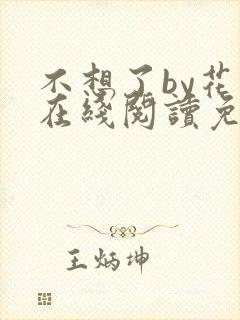 不想了by花
在綫閱讀免
王炳坤